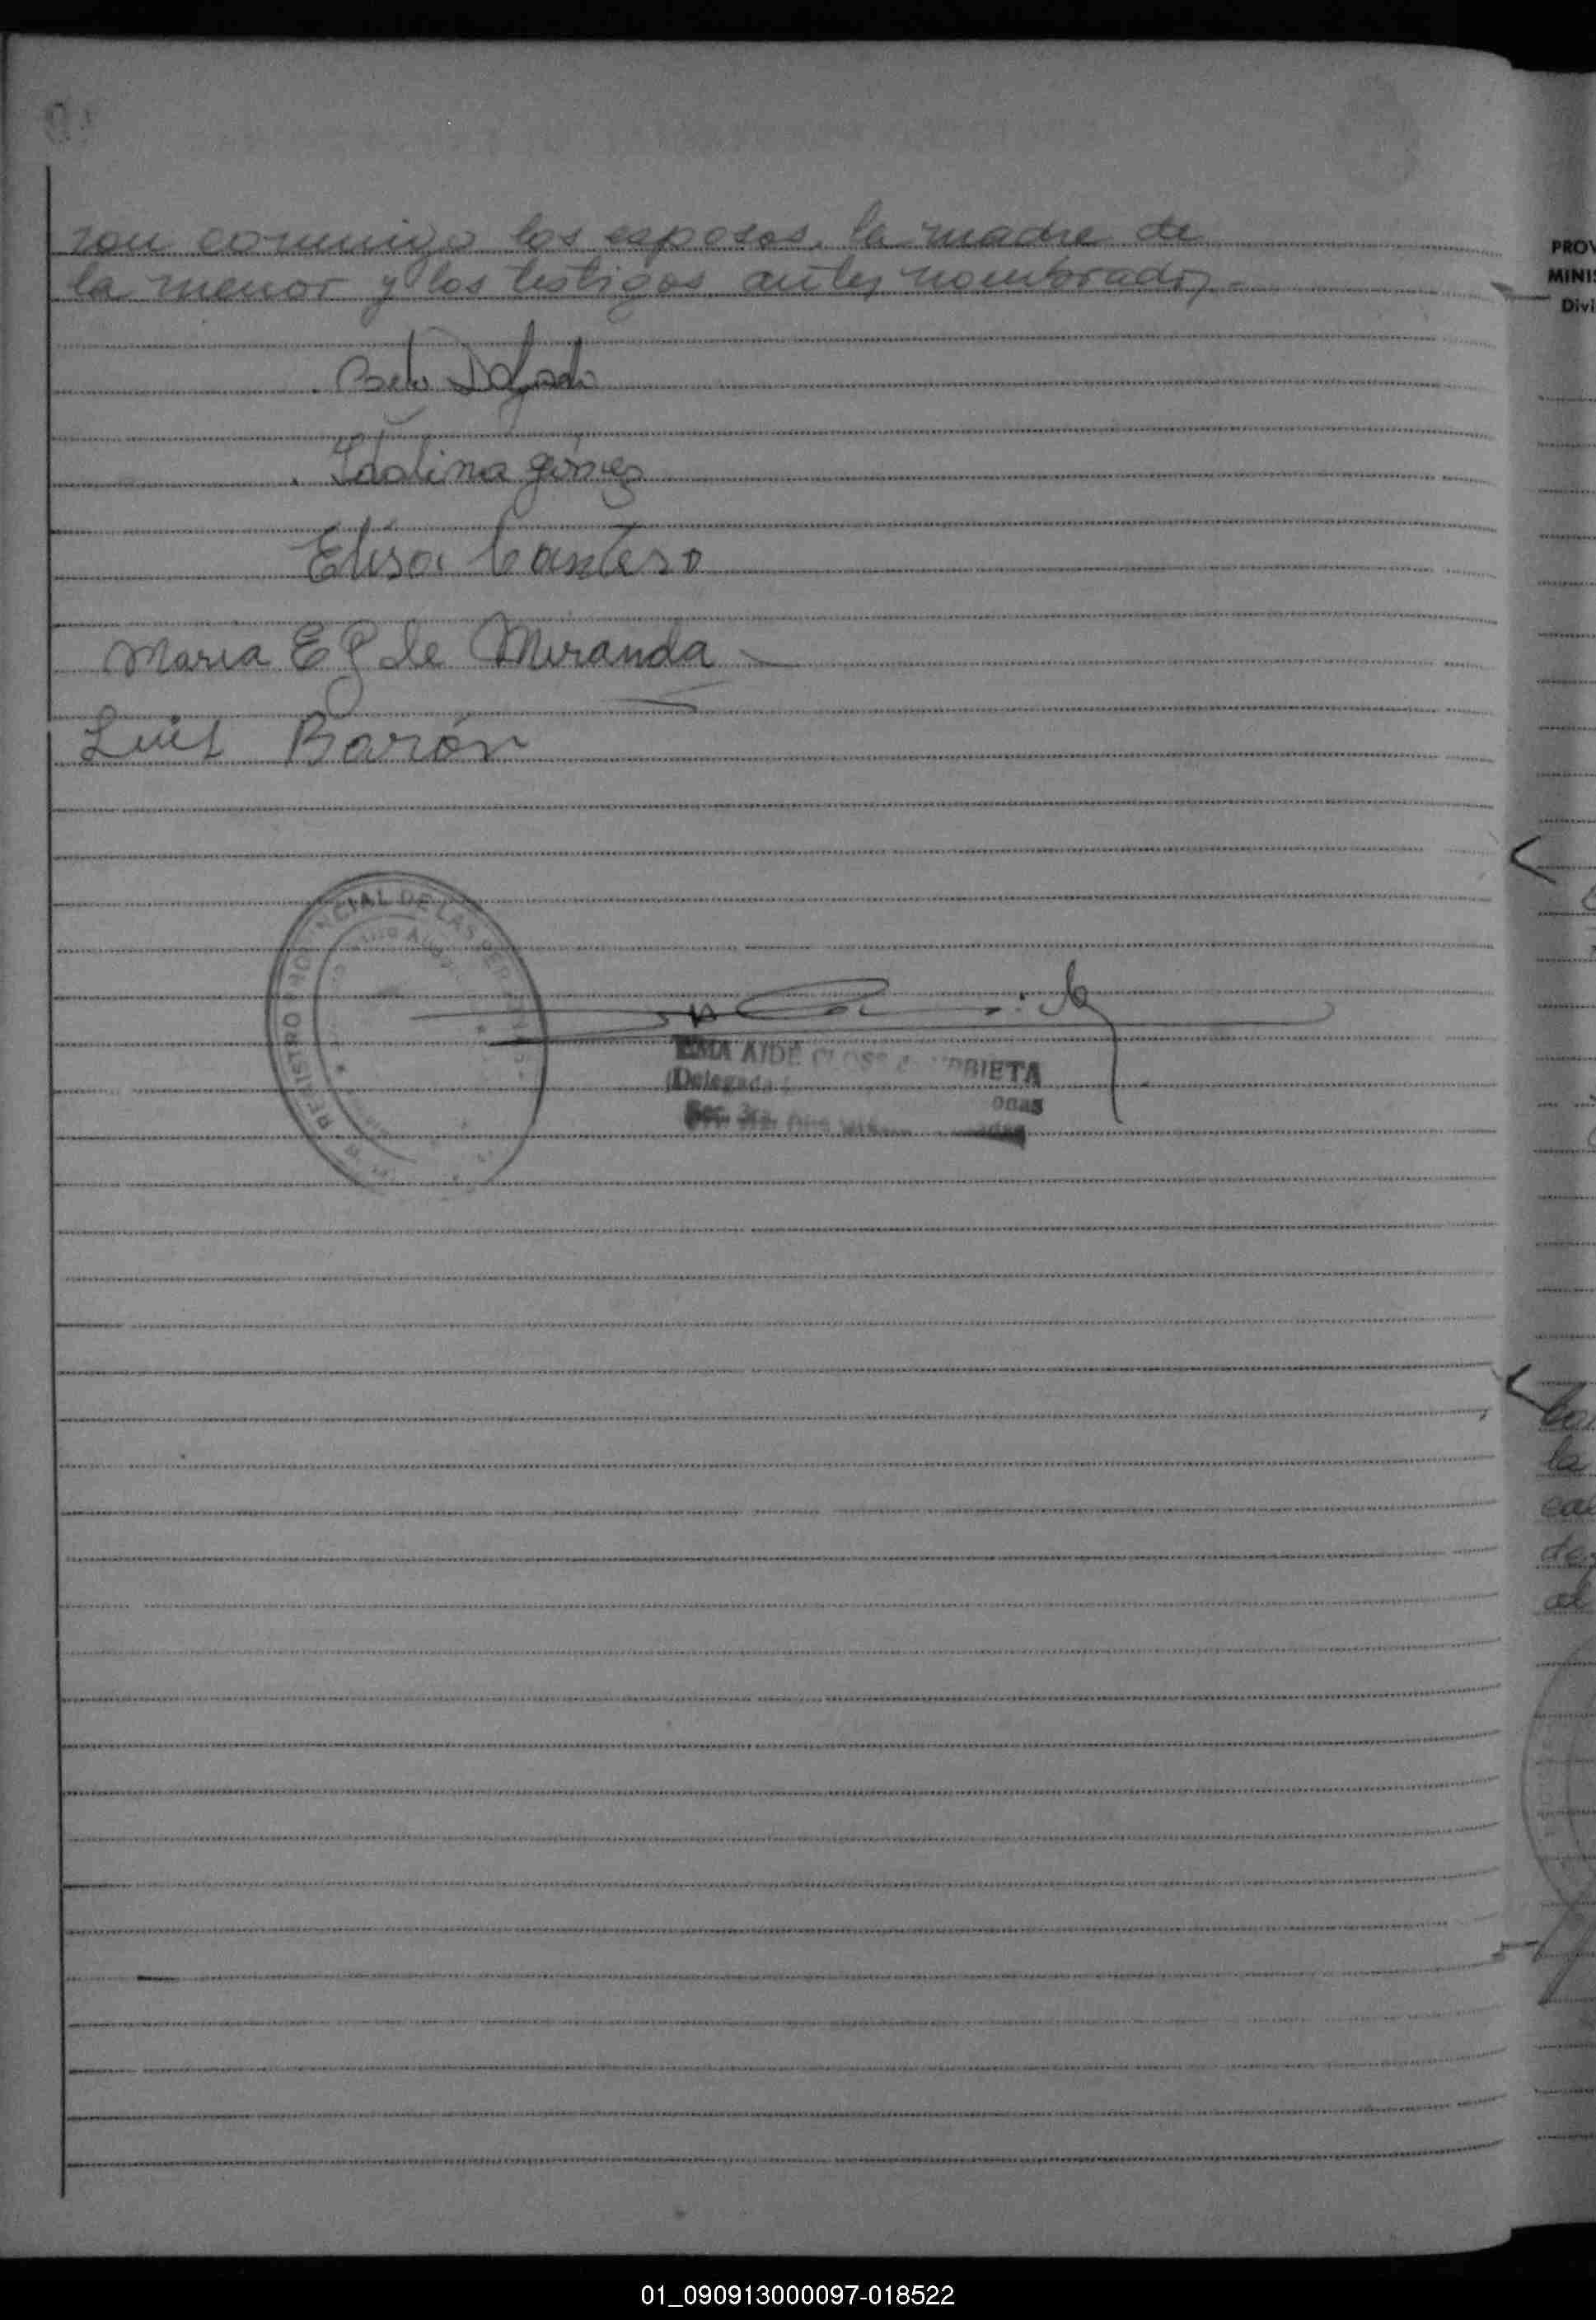 ron conmigo los esposos, la madre de
la menor y los testigos antes nombrados.-
Delgado
Idalina gómez
Elisa Cantero
Maria E G de Miranda
Luis Barón
REGISTRO PROVINCIAL DE LAS PERSONAS
EMA AIDÉ CLOSS ARRIETA
(Delegada)
onas
Sec. 3ra.
PROV
MINIS
Divi
la
de
al
01_090913000097-018522